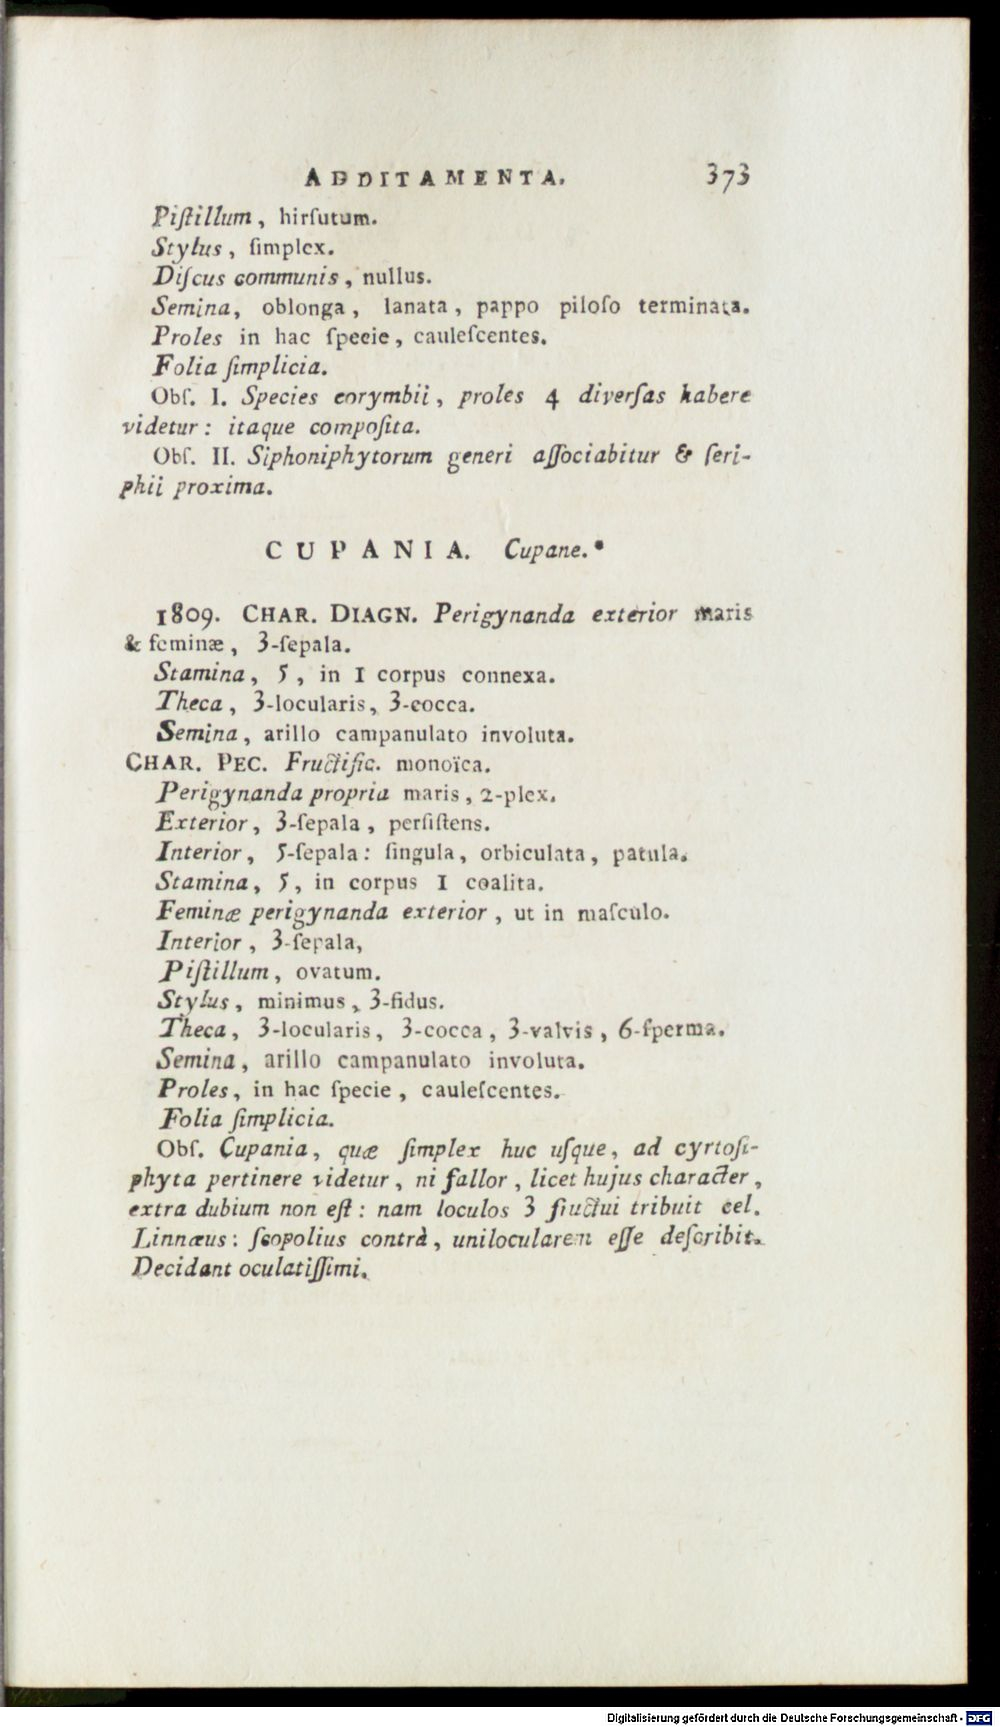 ADDITAMENTA. 373
Piſtillum, hirſutum.
Stylus, ſimplex.
Diſcus communis, nullus.
Semina, oblonga, lanata, pappo piloſo terminata.
Proles in hac ſpecie, cauleſcentes.
Folia ſimplicia.
Obſ. I. Species corymbii, proles 4 diverſas habere
videtur: itaque compoſita.
Obſ. II. Siphoniphytorum generi aſſociabitur & ſeri-
phii proxima.
CUPANIA. Cupane.*
1809. CHAR. DIAGN. Perigynanda exterior maris
& feminæ, 3-ſepala.
Stamina, 5, in 1 corpus connexa.
Theca, 3-locularis, 3-cocca.
Semina, arillo campanulato involuta.
CHAR. PEC. Fructific. monoïca.
Perigynanda propria maris, 2-plex.
Exterior, 3-ſepala, perſiſtens.
Interior, 5-ſepala: ſingula, orbiculata, patula.
Stamina, 5, in corpus 1 coalita.
Feminæ perigynanda exterior, ut in maſculo.
Interior, 3-ſepala,
Piſtillum, ovatum.
Stylus, minimus, 3-fidus.
Theca, 3-locularis, 3-cocca, 3-valvis, 6-ſperma.
Semina, arillo campanulato involuta.
Proles, in hac ſpecie, cauleſcentes.
Folia ſimplicia.
Obſ. Cupania, quæ ſimplex huc uſque, ad cyrtoſi-
phyta pertinere videtur, ni fallor, licet hujus character,
extra dubium non eſt: nam loculos 3 fructui tribuit cel.
Linnæus: ſcopolius contrà, unilocularem eſſe deſcribit.
Decidant oculatiſſimi.
Digitalisierung gefördert durch die Deutsche Forschungsgemeinschaft - DFG